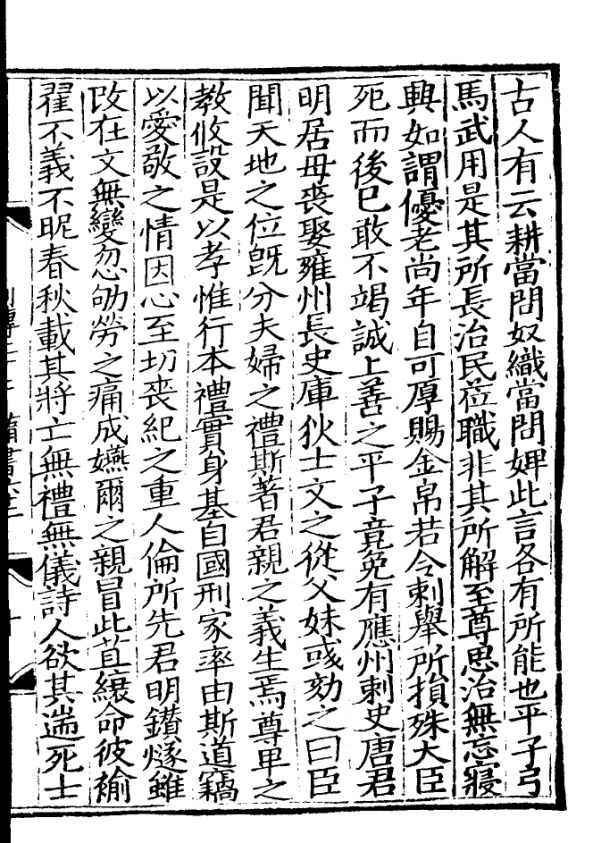 古人有云耕當問奴織當問婢此言各有所能也平子弓
馬武用是其所長治民莅職非其所解至尊思治無忘寢
興如謂優老尚年自可厚賜金帛若令刺舉所損殊大臣
死而後已敢不竭誠上善之平子竟免有應州刺史唐君
明居母喪娶雍州長史庫狄士文之從父妹彧劾之曰臣
聞天地之位旣分夫婦之禮斯著君親之義生焉尊卑之
教攸設是以孝惟行本禮實身基自國刑家率由斯道竊
以愛敬之情因心至切喪紀之重人倫所先君明鑚燧雖
改在文無變忽劬勞之痛成嬿爾之親冒此苴縗命彼褕
翟不義不昵春秋載其將亡無禮無儀詩人欲其遄死士